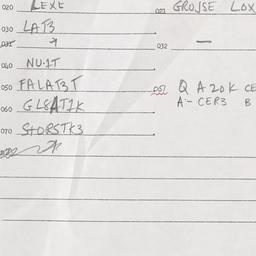 020 LEXE 021 GROJSE LOX
030 LAT3
031 032 —
040 NU.1T
050 FALAT3T 051 Q A20K CE
060 GLSAT1K A:- CER3 B
070 STORSTK3